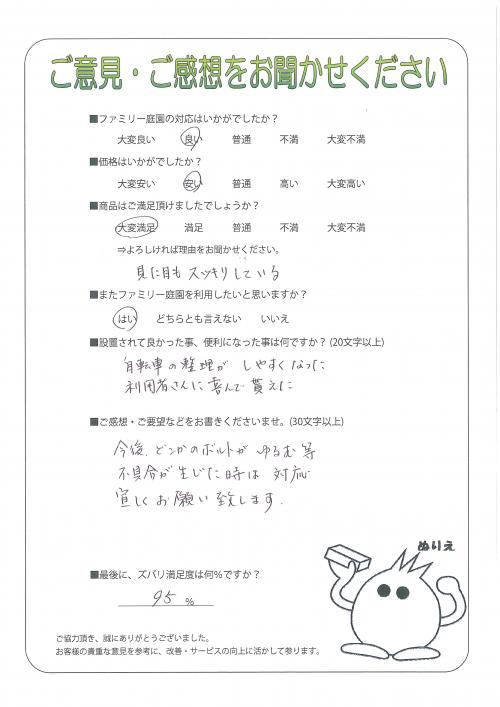 ご意見・ご感想をお聞かせください
■ファミリー庭園の対応はいかがでしたか？
大変良い 良い 普通 不満 大変不満
■価格はいかがでしたか？
大変安い 安い 普通 高い 大変高い
■商品はご満足頂けましたでしょうか？
大変満足 満足 普通 不満 大変不満
⇒よろしければ理由をお聞かせください。
見た目もスッキリしている
■またファミリー庭園を利用したいと思いますか？
はい どちらとも言えない いいえ
■設置されて良かった事、便利になった事は何ですか？(20文字以上)
自転車の整理が しやすくなった
利用者さんに喜んで貰えた
■ご感想・ご要望などをお書きくださいませ。(30文字以上)
今後、どこかのボルトが ゆるむ等
不具合が生じた時は 対応
宜しくお願い致します.
ぬりえ
■最後に、ズバリ満足度は何％ですか？
95 ％
ご協力頂き、誠にありがとうございました。
お客様の貴重な意見を参考に、改善・サービスの向上に活かして参ります。